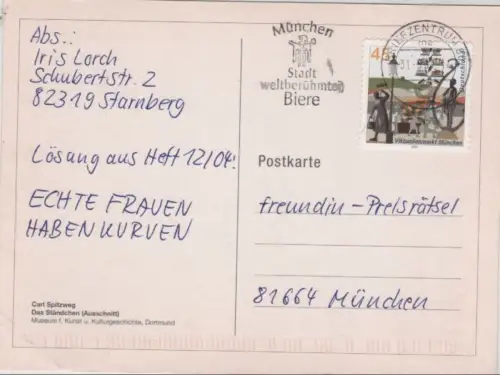 Abs.:
Iris Lorch
Schubertstr. 2
82319 Starnberg
Lösung aus Heft 12/04:
ECHTE FRAUEN
HABEN KURVEN
Carl Spitzweg
Das Ständchen (Ausschnitt)
Museum f. Kunst u. Kulturgeschichte, Dortmund
München
Stadt
weltberühmter
Biere
45
Deutschland
Viktualienmarkt München
Postkarte
freundin-Preisrätsel
81664 München